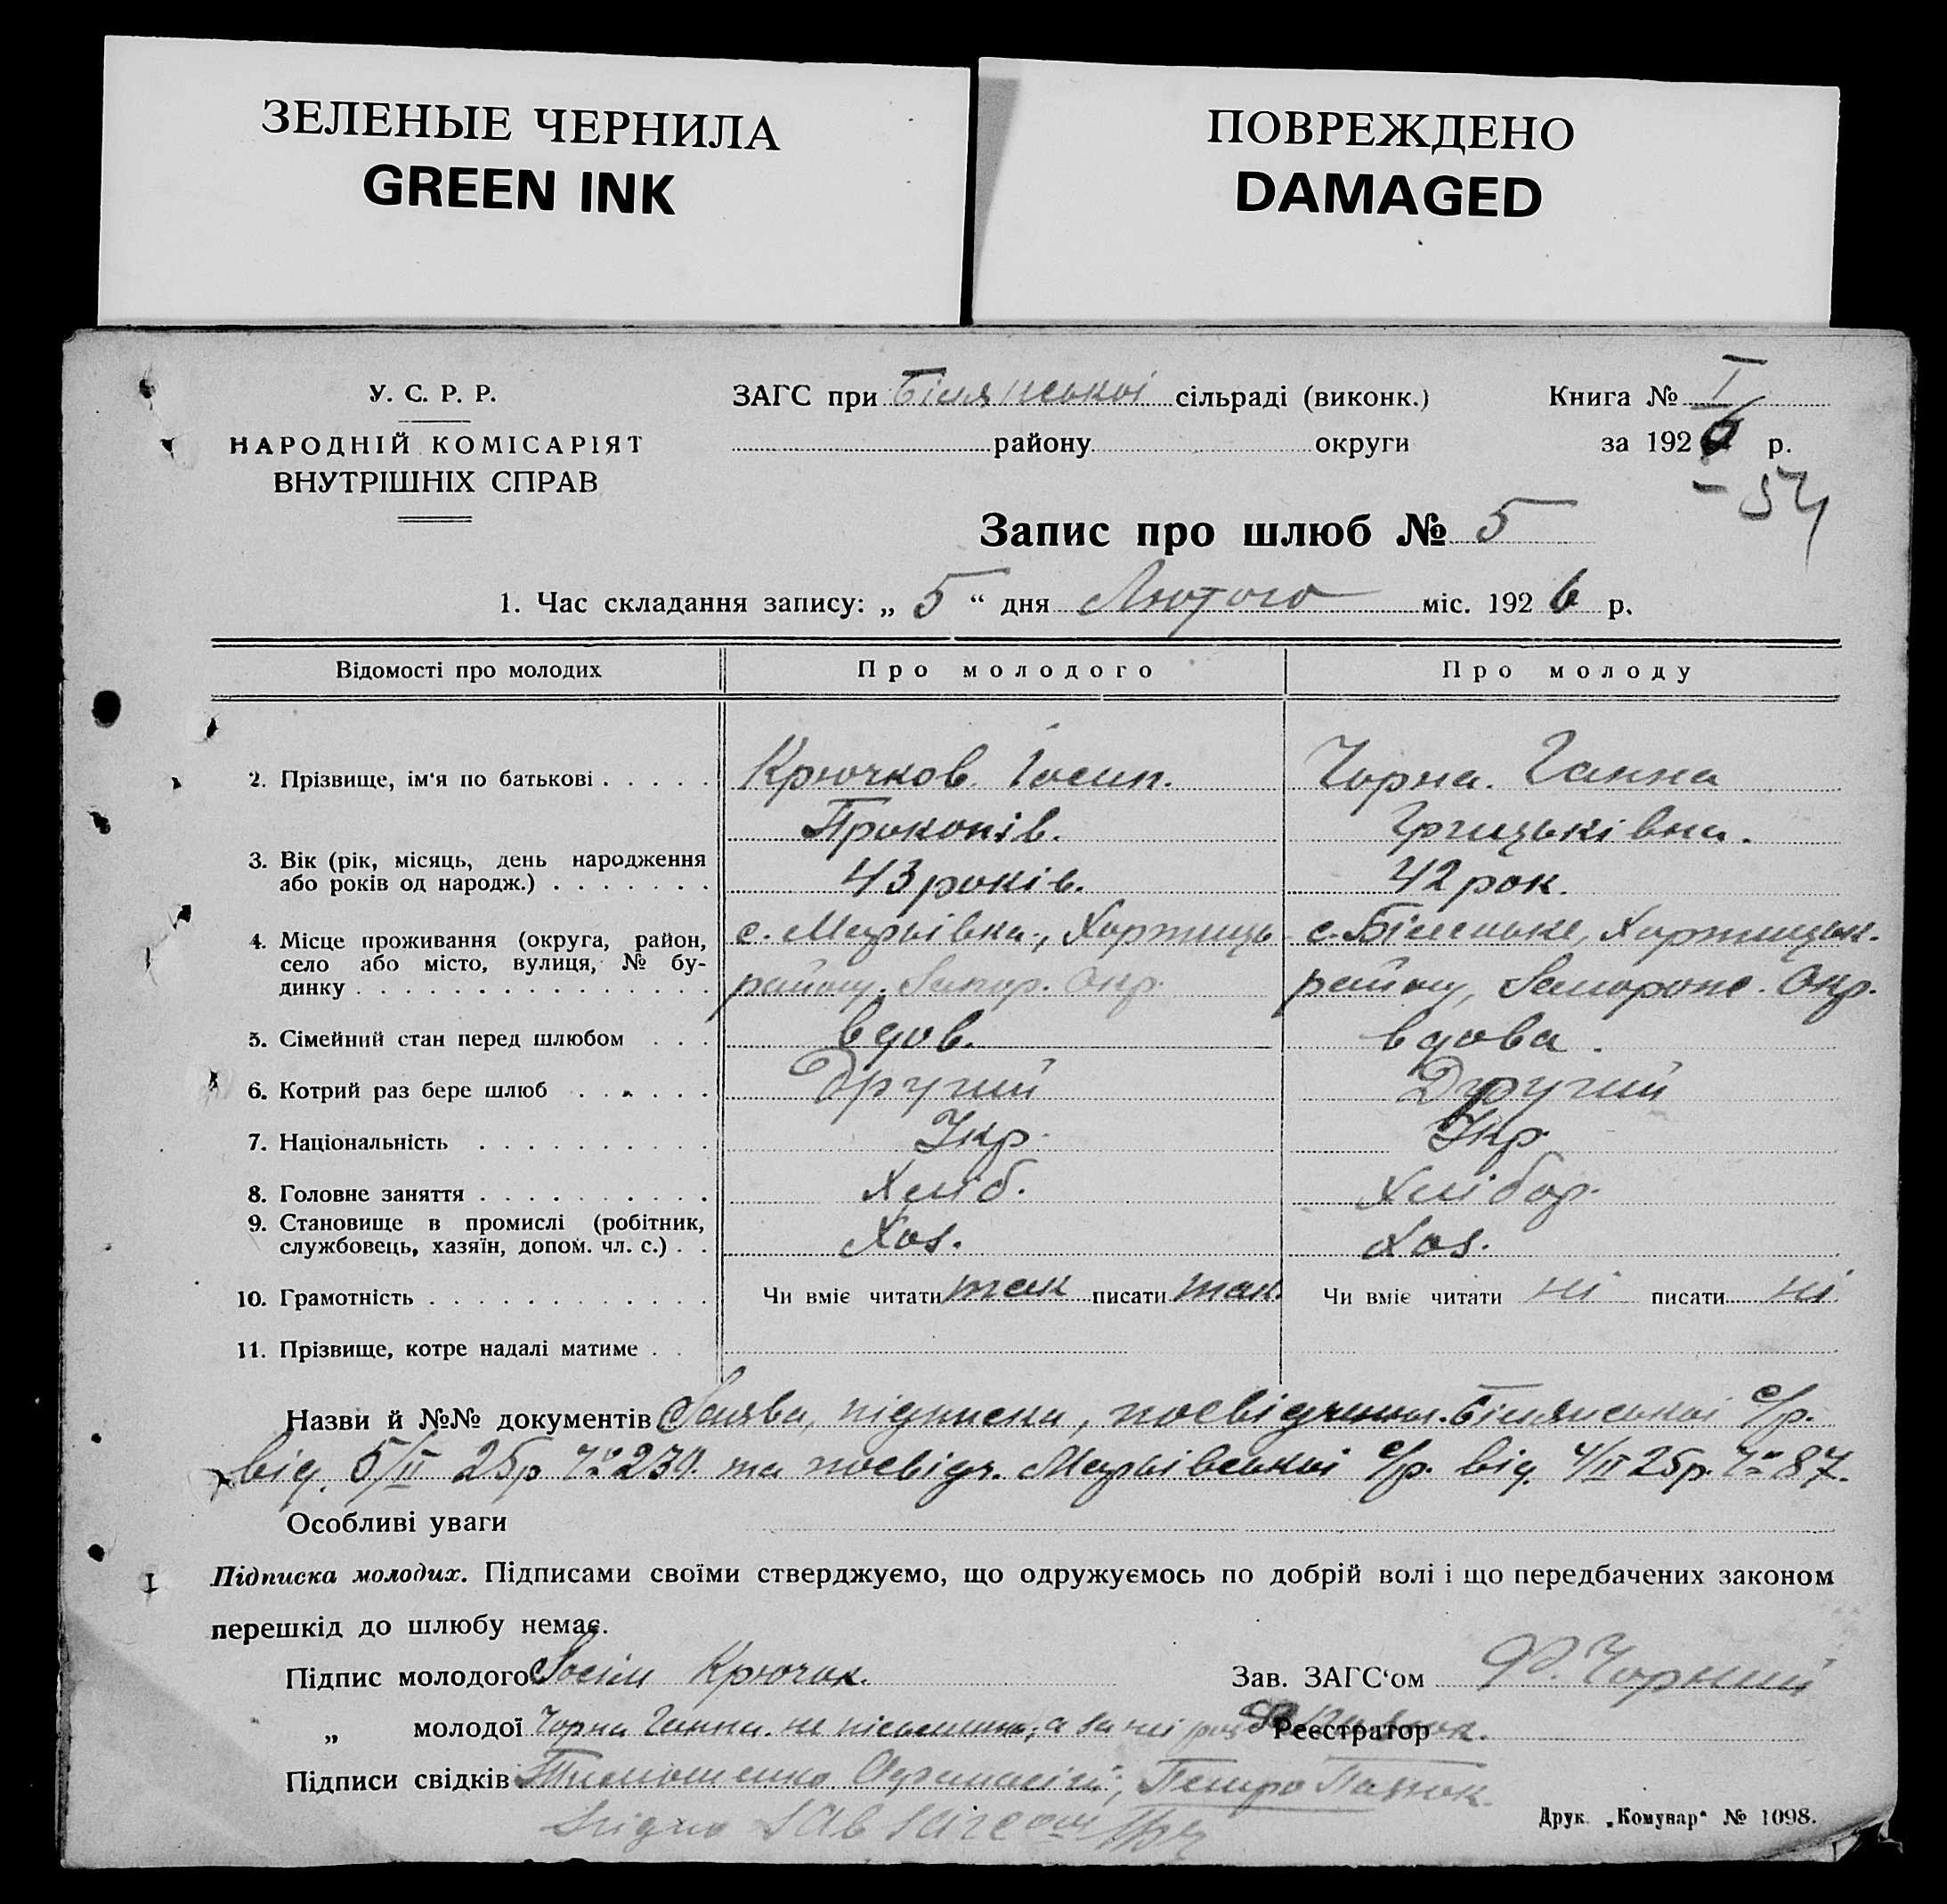 ЗЕЛЕНЫЕ ЧЕРНИЛА
GREEN INK
ПОВРЕЖДЕНО
DAMAGED
У. С. Р. Р.
НАРОДНІЙ КОМІСАРІЯТ
ВНУТРІШНІХ СПРАВ
ЗАГС при Білянської сільраді (виконк.)
району округи
Книга № I
за 1926 р.
- 54
Запис про шлюб № 5
1. Час складання запису: „ 5 “ дня Лютого міс. 1926 р.
Відомості про молодих Про молодого Про молоду
2. Прізвище, ім‘я по батькові Крючков Іосип. Чорна. Ганна
Прокопів. Грицьківна.
3. Вік (рік, місяць, день народження
або років од народж.) 43 років. 42 рок.
4. Місце проживання (округа, район, с. Хортиць с. Біленьке, Хортицьк.
село або місто, вулиця, № бу-
динку району. Запор. Окр. району, Запорож. Окр.
5. Сімейний стан перед шлюбом вдов. вдова.
6. Котрий раз бере шлюб Другий Другий
7. Національність Укр. Укр.
8. Головне заняття Хліб. Хлібор.
9. Становище в промислі (робітник,
службовець, хазяїн, допом. чл. с.) Хоз. Хоз.
10. Грамотність Чи вміє читати так писати так. Чи вміє читати ні писати ні
11. Прізвище, котре надалі матиме
Назви й №№ документів Заява, підписка, посвідчення. Білянської с/р.
від. 5/II 25р № 230. та посвідч. с/р. від. 4/II 25р. № 87.
Особливі уваги
Підписка молодих. Підписами своїми стверджуємо, що одружуємось по добрій волі і що передбачених законом
перешкід до шлюбу немає.
Підпис молодого Іосип Крючок. Зав. ЗАГС‘ом Ф. Чорний
„ молодої Чорна Ганна. не письменна, а за неї Реєстратор
Підписи свідків Тимошенко Афанасій, Петро
Друк. „Комунар“ № 1098.